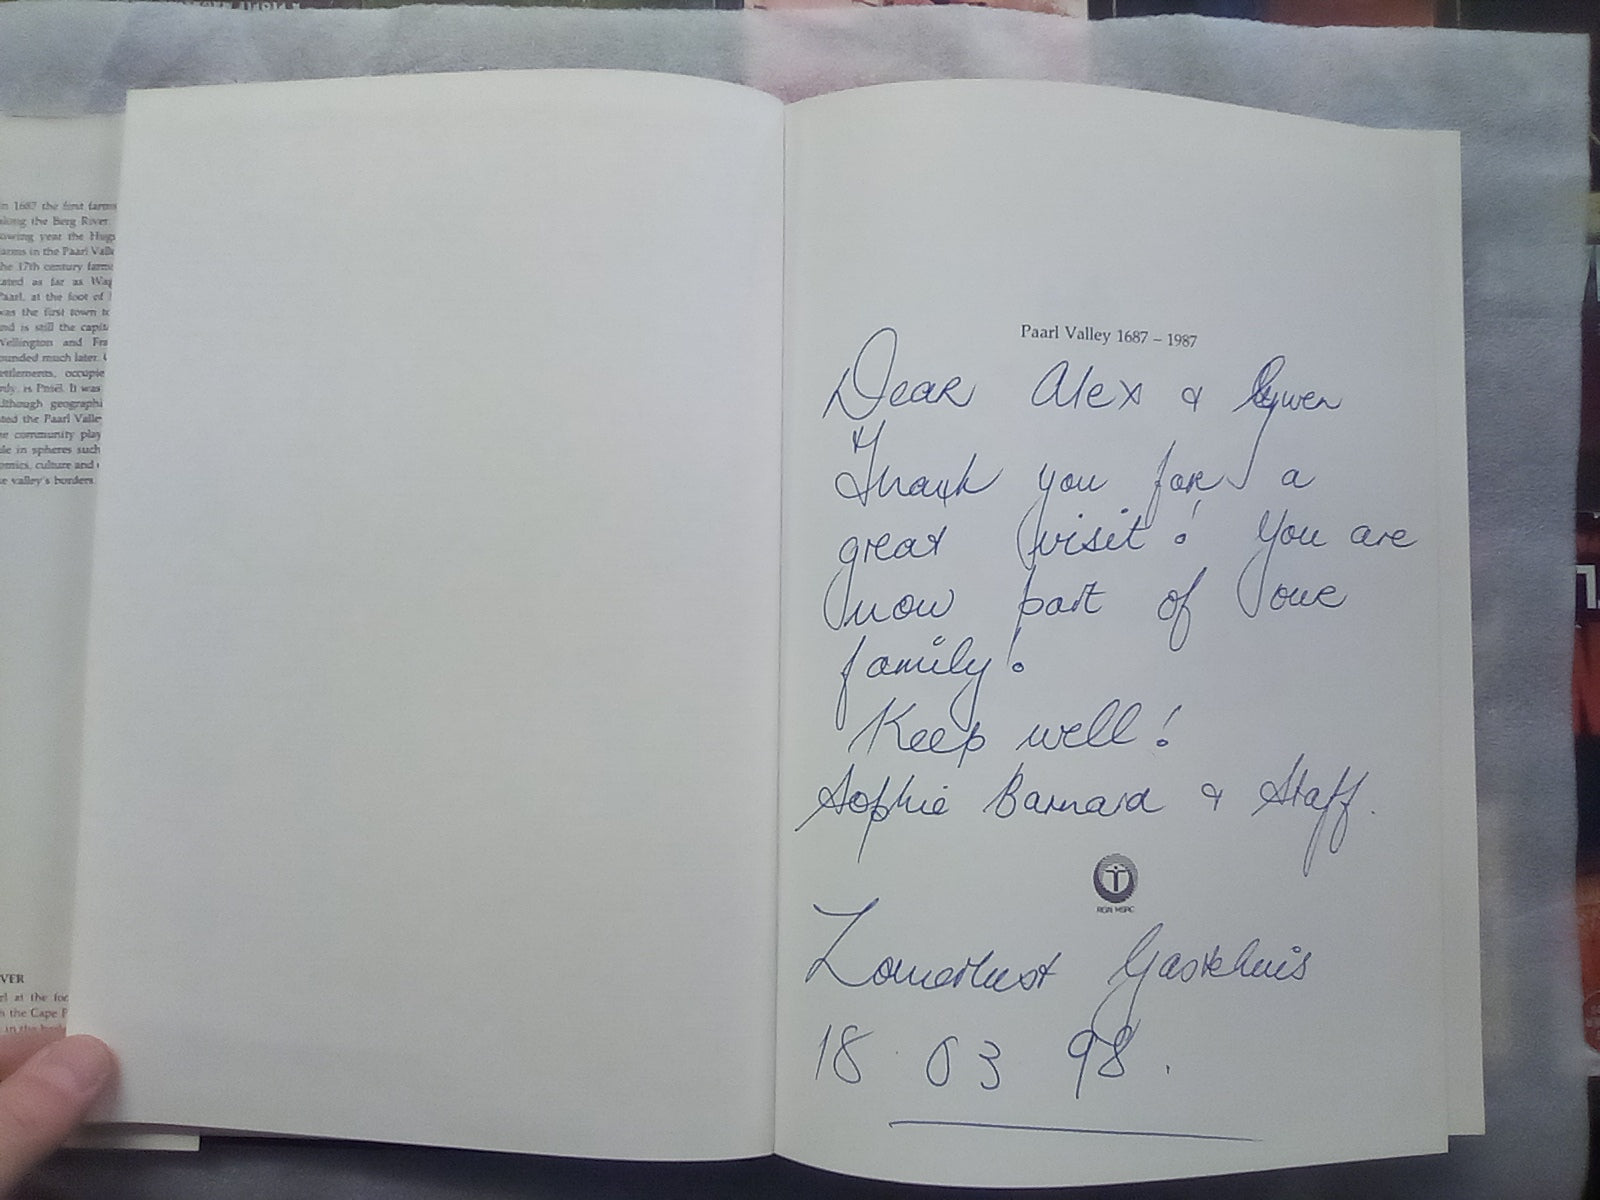 in 1687 the first farms
along the Berg River.
owing year the Hug
farms in the Paarl Vall
the 17th century farm
cated as far as Wag
Paarl, at the foot of
was the first town to
and is still the capit
Wellington and Fra
ounded much later.
ettlements, occupie
nly, is Pniël. It was
lthough geographi
ted the Paarl Valle
he community play
ole in spheres such
omics, culture and
he valley's borders.
VER
rl at the foo
h the Cape P
Paarl Valley 1687 – 1987
Dear Alex & Gwen
Thank you for a
great visit! You are
now part of our
family!
Keep well!
Sophie Barnard & Staff.
RGN HSRC
Zomerlust Gastehuis
18 03 98.